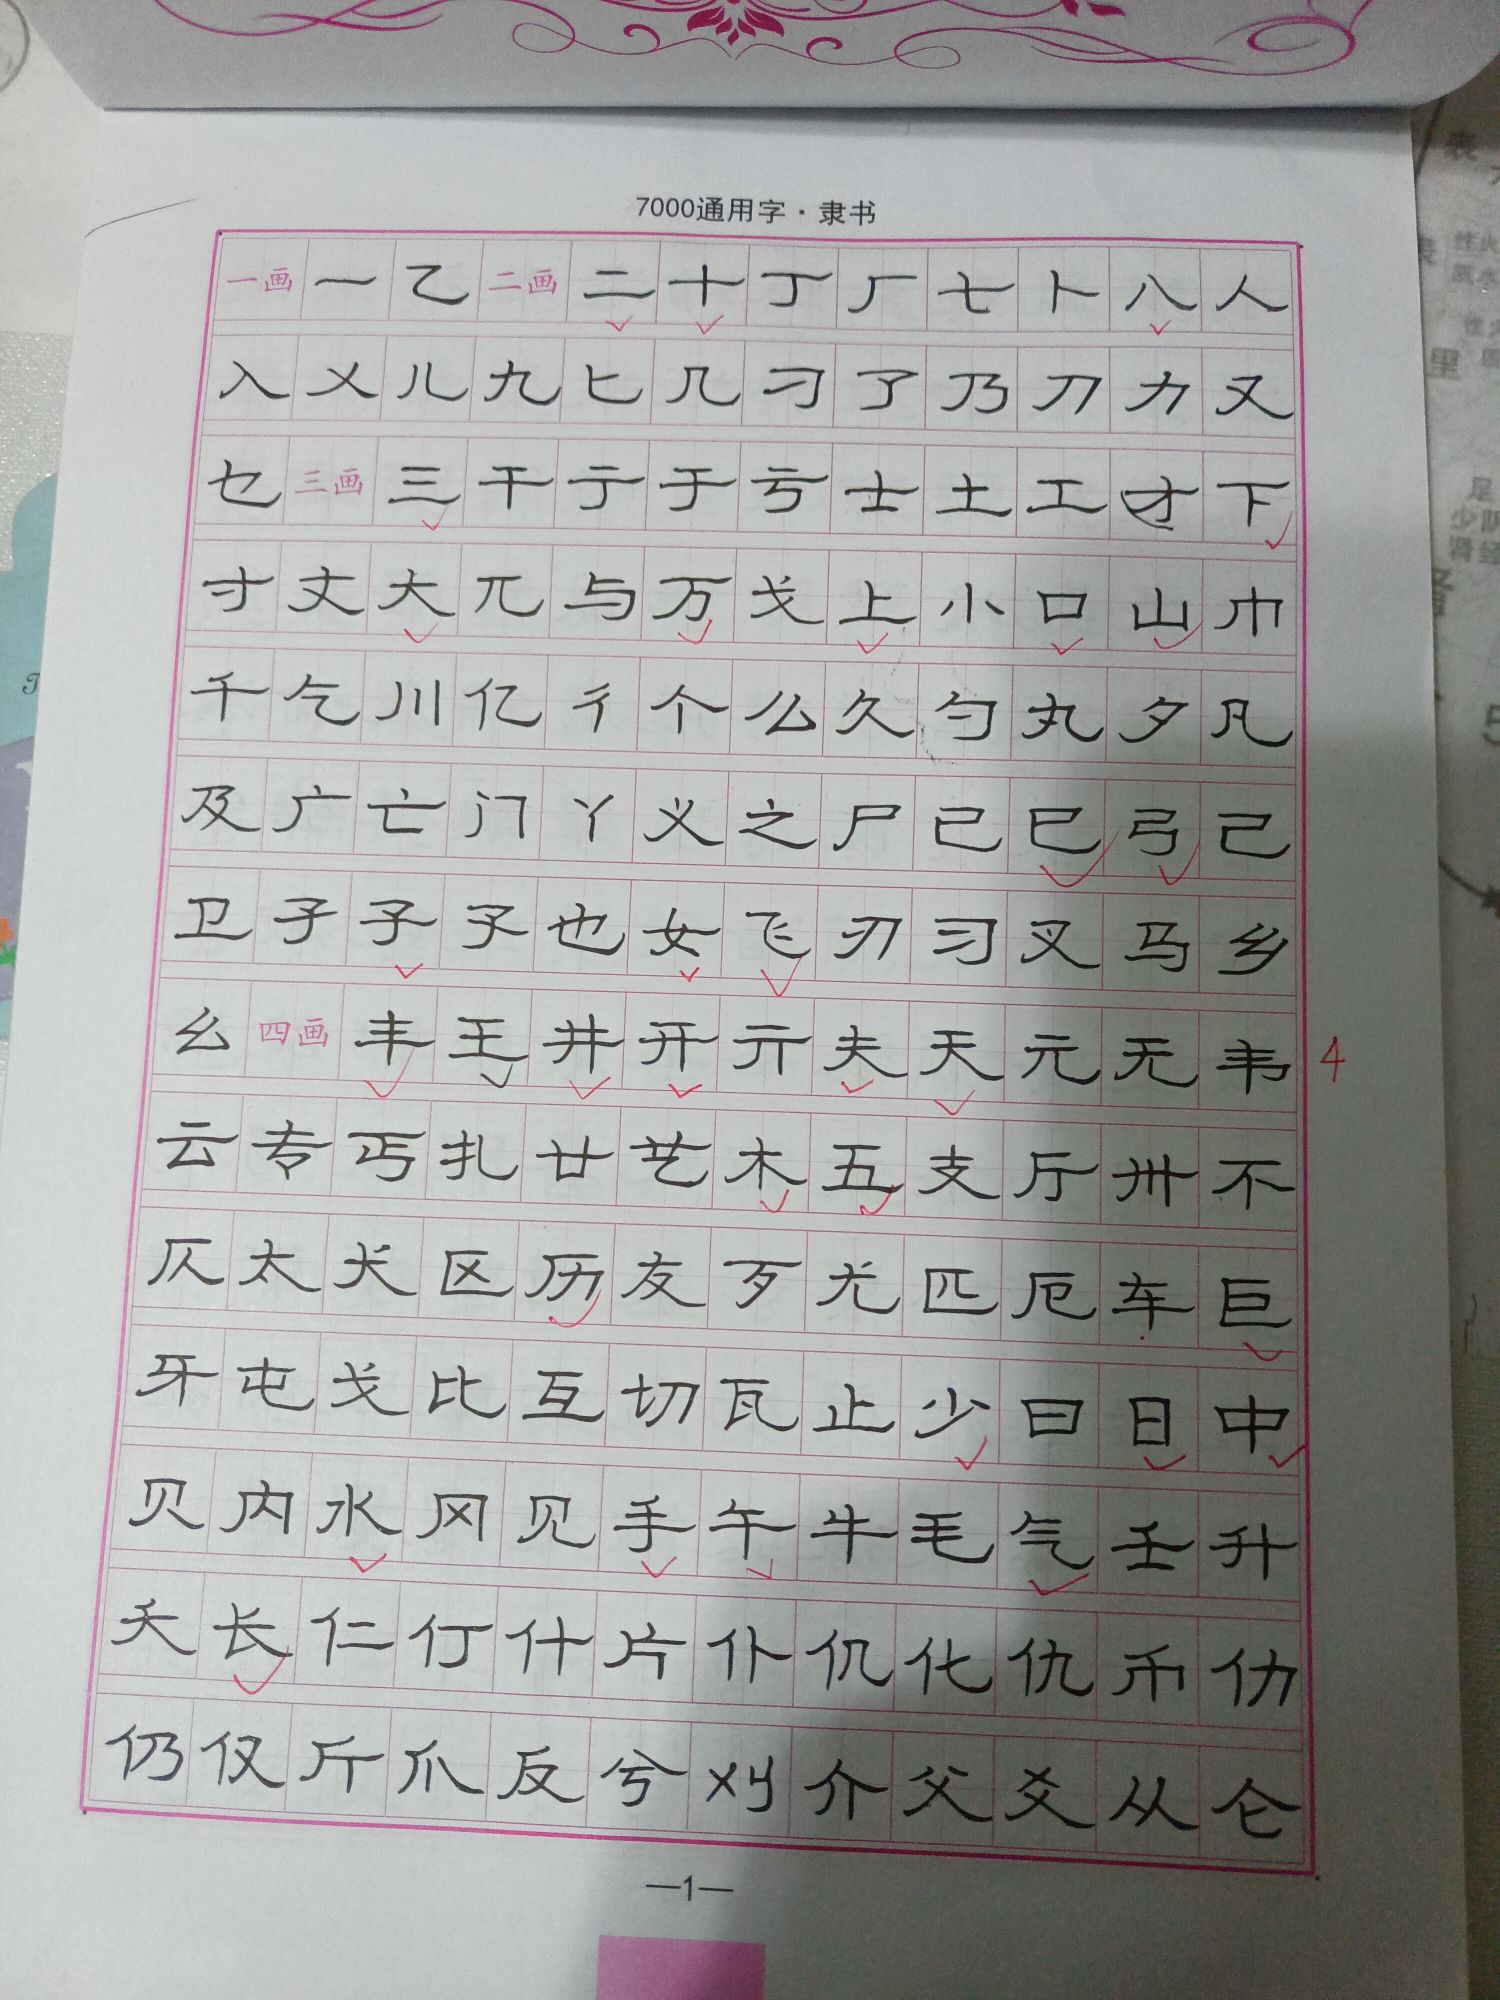 7000通用字·隶书
一画 一 乙 二画 二 十 丁 厂 七 卜 八 人
入 乂 儿 九 匕 几 刁 了 乃 刀 力 又
乜 三画 三 干 亍 于 亏 士 土 工 才 下
寸 丈 大 兀 与 万 弋 上 小 口 山 巾
千 乞 川 亿 彳 个 么 久 勺 丸 夕 凡
及 广 亡 门 丫 义 之 尸 已 巳 弓 己
卫 孑 子 孓 也 女 飞 刃 习 叉 马 乡
幺 四画 丰 王 井 开 亓 夫 天 元 无 韦
4
云 专 丐 扎 廿 艺 木 五 支 厅 卅 不
仄 太 犬 区 历 友 歹 尤 匹 厄 车 巨
牙 屯 戈 比 互 切 瓦 止 少 曰 日 中
贝 内 水 冈 见 手 午 牛 毛 气 壬 升
夭 长 仁 仃 什 片 仆 仉 化 仇 币 仂
仍 仅 斤 爪 反 兮 刈 介 父 爻 从 仑
—1—
里
足
少阴
肾经